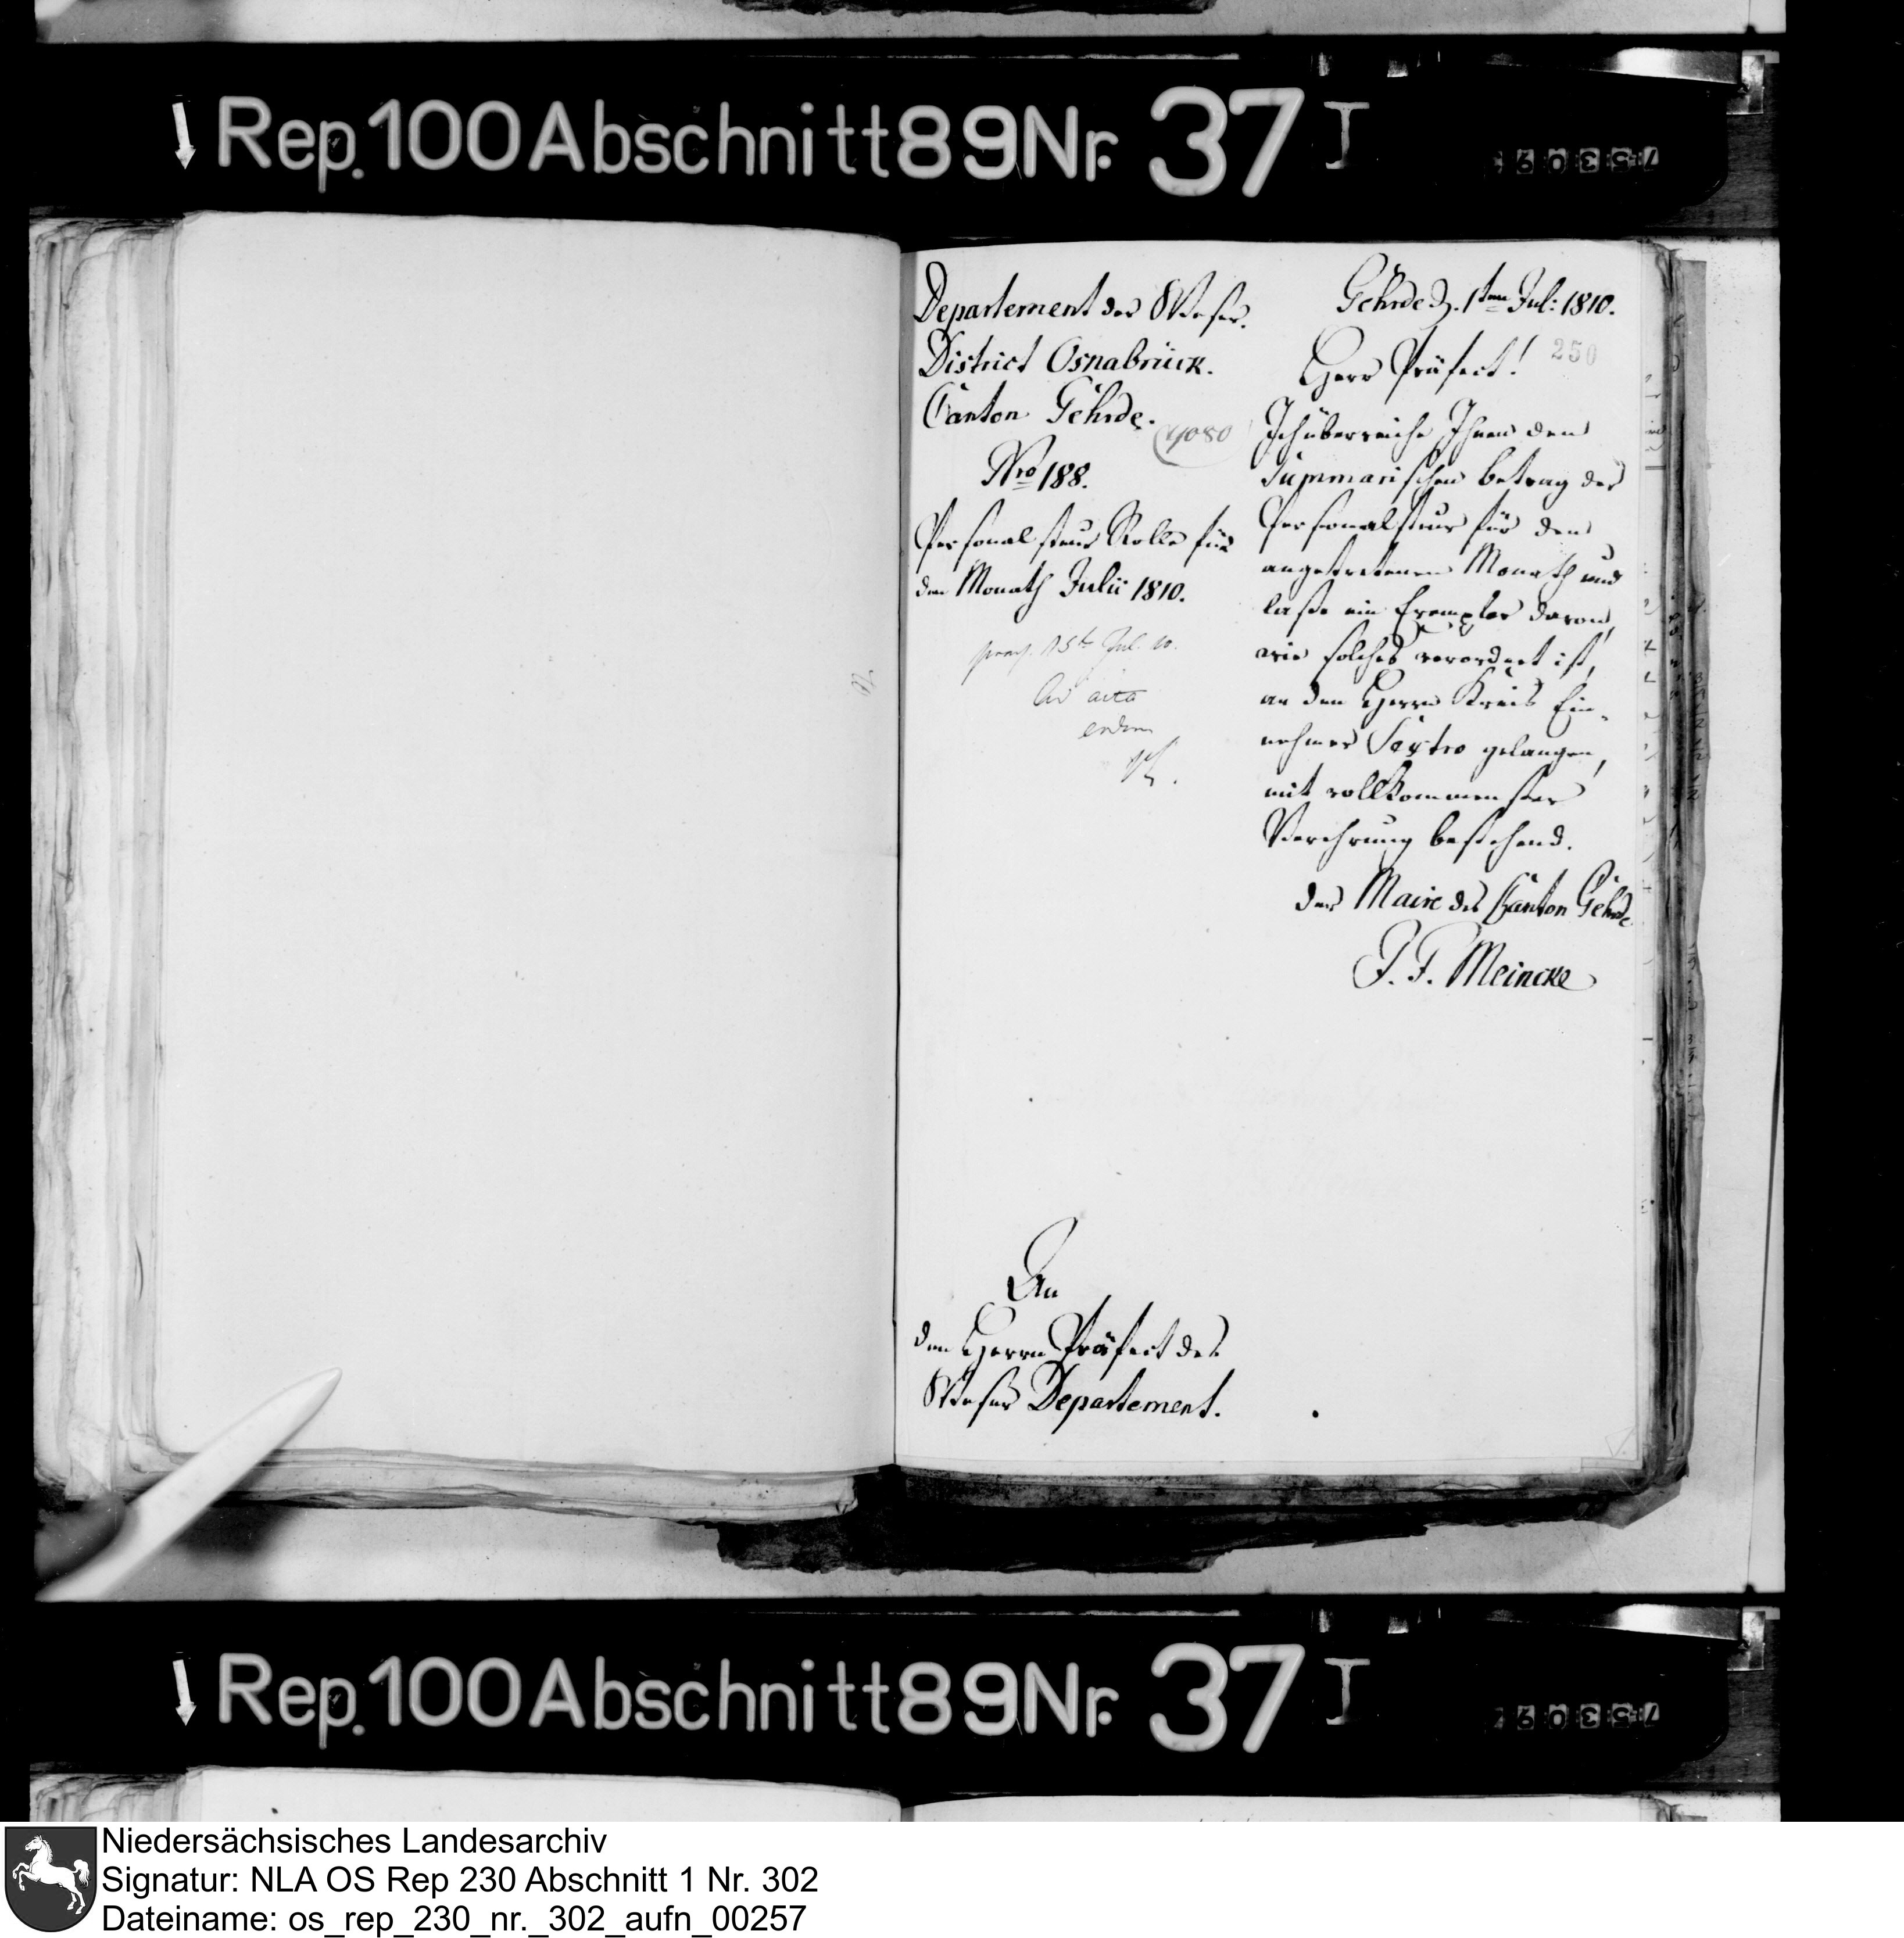 Rep. 100 Abschnitt 89 Nr. 37 I
Departement der Weser.
District Osnabrück.
Canton Gehrde.
4080
Nro 188.
Personalsteur Rolle für
den Monath Julii 1810.
praes. 15t Jul. 10.
Ad acta
V.
Gehrde d. 1ten Jul: 1810.
250
Herr Präfect!
Ich überreiche Ihnen den
Summarischen betrag der
Personalsteur für den
angetretenen Monath und
laße ein Exemplar davon,
wie solches verordnet ist,
an den Herrn Kreis Ein-
nehmer Sextro gelangen,
mit vollkommenster
Verehrung bestehend.
der Maire des Canton Gehrde
J. F. Meincke
An
den Herrn Präfect des
Weser Departement.
Rep. 100 Abschnitt 89 Nr. 37 I
Niedersächsisches Landesarchiv
Signatur: NLA OS Rep 230 Abschnitt 1 Nr. 302
Dateiname: os_rep_230_nr._302_aufn_00257